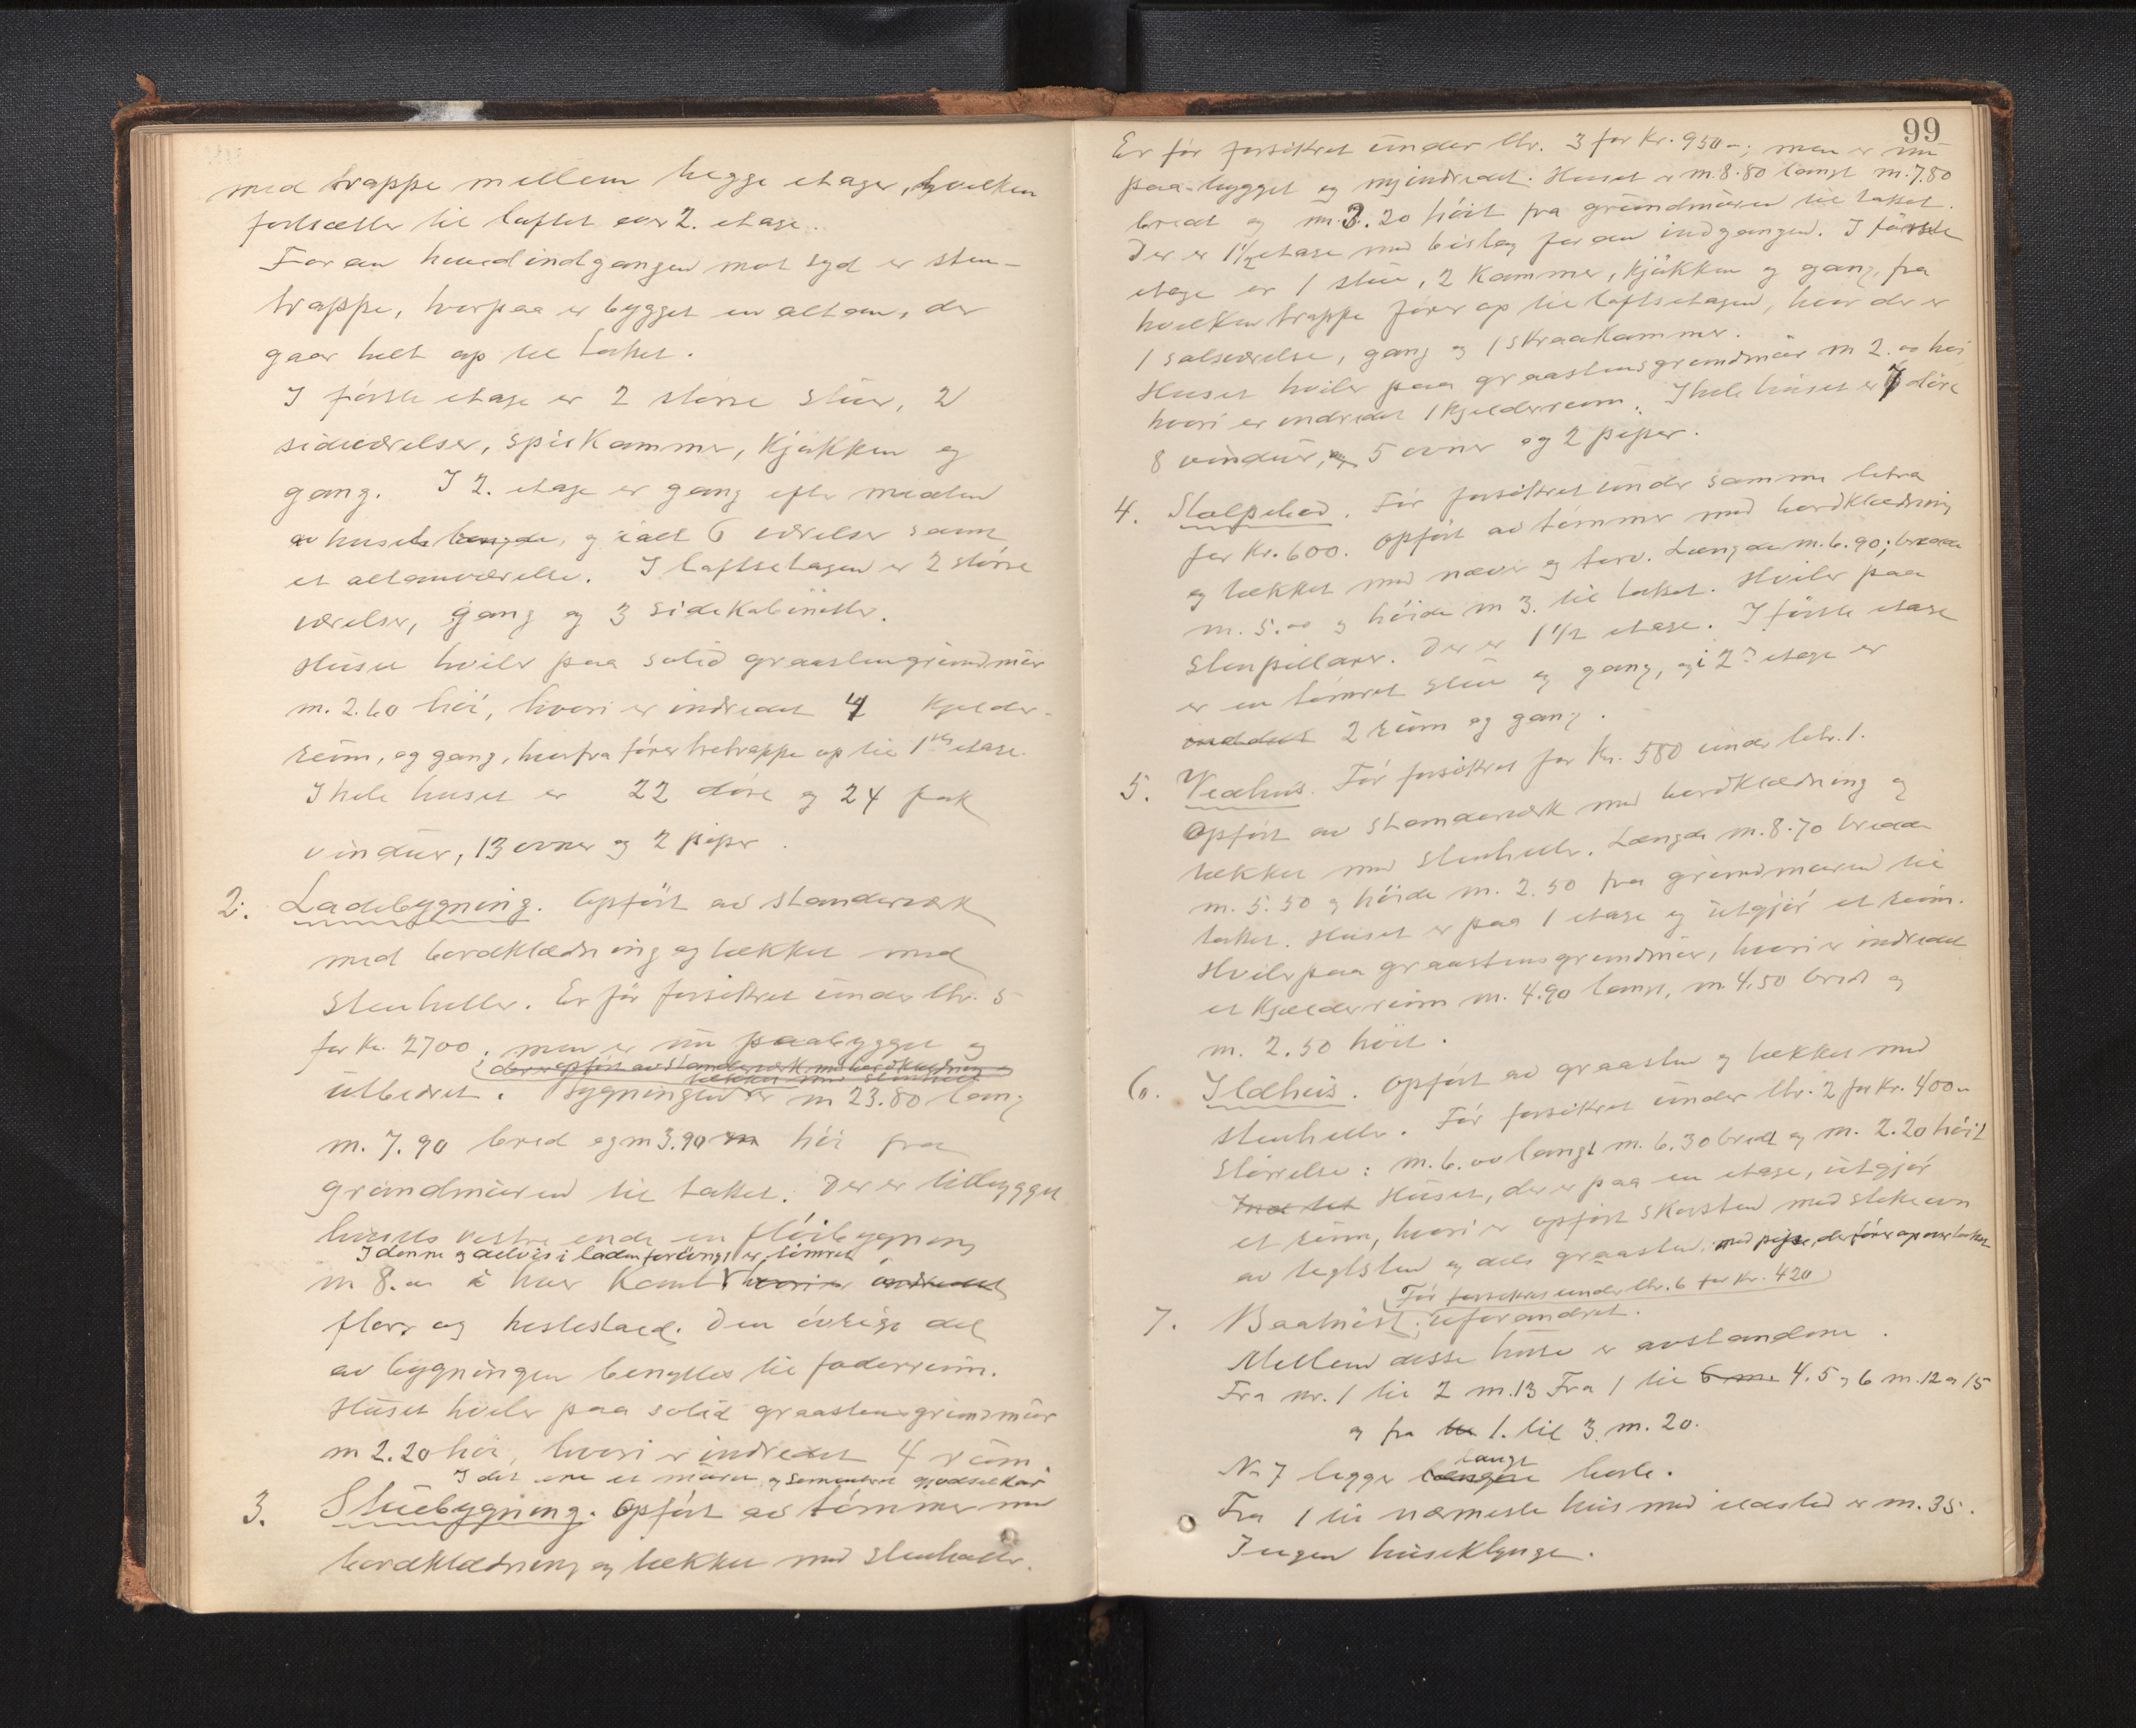 med trappe mellem begge etager, hvilken
fortsætter til loftet over 2. etage.
Foran hovedindgangen mot syd er sten-
trappe, hvorpaa er bygget en altan, der
gaar helt op til taket.
I første etage er 2 større stuer, 2
sideværelser, spiskammer, kjøkken og
gang. I 2. etage er gang efter midten
av husets længde, og ialt 6 værelser samt
et altanværelse. I loftsetagen er 2 større
værelser, gang og 3 sidekabinetter.
Huset hviler paa solid graastensgrundmur
m. 2.60 høi, hvori er indredet 4 kjelder-
rum, og gang, hvorfra fører trætrappe op til 1ste etage.
I hele huset er 22 døre og 24 fak
vinduer, 13 ovner og 2 piper.
2. Ladebygning. Opført av standerværk
med bordklædning og tækket med
stenheller. Er før forsikret under litr. 5
for Kr. 2700; men er nu paabygget og
der er opført av standerværk med bordklædning og
tækket med stenheller
utbedret. Bygningen er m 23.80 lang
m. 7.90 bred og m 3.90 høi fra
grundmuren til taket. Der er tilbygget
husets vestre ende en fløibygning
I denne og delvis i laden forøvrigt er tømret
m 8.00 i hver kant hvori er indredet
flor og hestestald. Den øvrige del
av bygningen benyttes til foderrum.
Huset hviler paa solid graastensgrundmur
m 2.20 høi, hvori er indredet 4 rum.
I det ene et muret og sementeret gjødselkar
3. Stuebygning. Opført av tømmer med
bordklædning og tækket med stenheller.
99
Er før forsikret under litr. 3 for Kr. 950-; men er nu
paa-bygget og nyindredet. Huset er m. 8.80 langt m. 7.80
bredt og m. 3.20 høit fra grundmuren til taket.
Der er 1 1/2 etase med bislag foran indgangen. I første
etage er 1 stue, 2 kammer, kjøkken og gang, fra
hvilken trappe fører op til loftsetagen, hvor der er
1 salsværelse, gang og 1 skraakammer.
Huset hviler paa graastensgrundmur m 2.00 høi
hvori er indredet 1 kjelderrum. I hele huset er 7 døre
8 vinduer, 5 ovner og 2 piper.
4. Stolpebod. Før forsikret under samme litra
for Kr. 600. Opført av tømmer med bordklædning
og tækket med næver og torv. Længde m. 6.90; bredde
m. 5.00 og høide m 3. til taket. Hviler paa
stenpillarer. Der er 1 1/2 etase. I første etase
er en tømret stue og gang, og i 2den etage er
inddelt 2 rum og gang.
5. Vedhus. Før forsikret for Kr. 580 under litr. 1.
Opført av standerværk med bordklædning og
tækket med stenheller. Længde m. 8.70 bredde
m. 5.50 og høide m. 2.50 fra grundmuren til
taket. Huset er paa 1 etase og utgjør et rum.
Hviler paa graastensgrundmur, hvori er indredet
et kjælderrum m. 4.90 langt, m 4.50 bredt og
m. 2.50 høit.
6. Ildhus. Opført av graasten og tækket med
stenheller. Før forsikret under litr. 2 for Kr. 400.-
Størrelse: m. 6.00 langt m. 6.30 bredt og m. 2.20 høit
Huset, der er paa en etase, utgjør
et rum, hvori er opført skorsten med stekeovn
av teglsten og dels graasten, med pipe, der fører op over taket
Før forsikret under litr. 6 for Kr. 420
7. Baatnøst; uforandret.
Mellem disse huse er avstandene.
Fra nr. 1 til 2 m. 13 Fra 1 til 4. 5 og 6 m. 12 a 15
og fra 1. til 3 m. 20.
langt
No 7 ligger borte.
Fra 1 til nærmeste hus med ildsted er m. 35.
Ingen huseklynge.